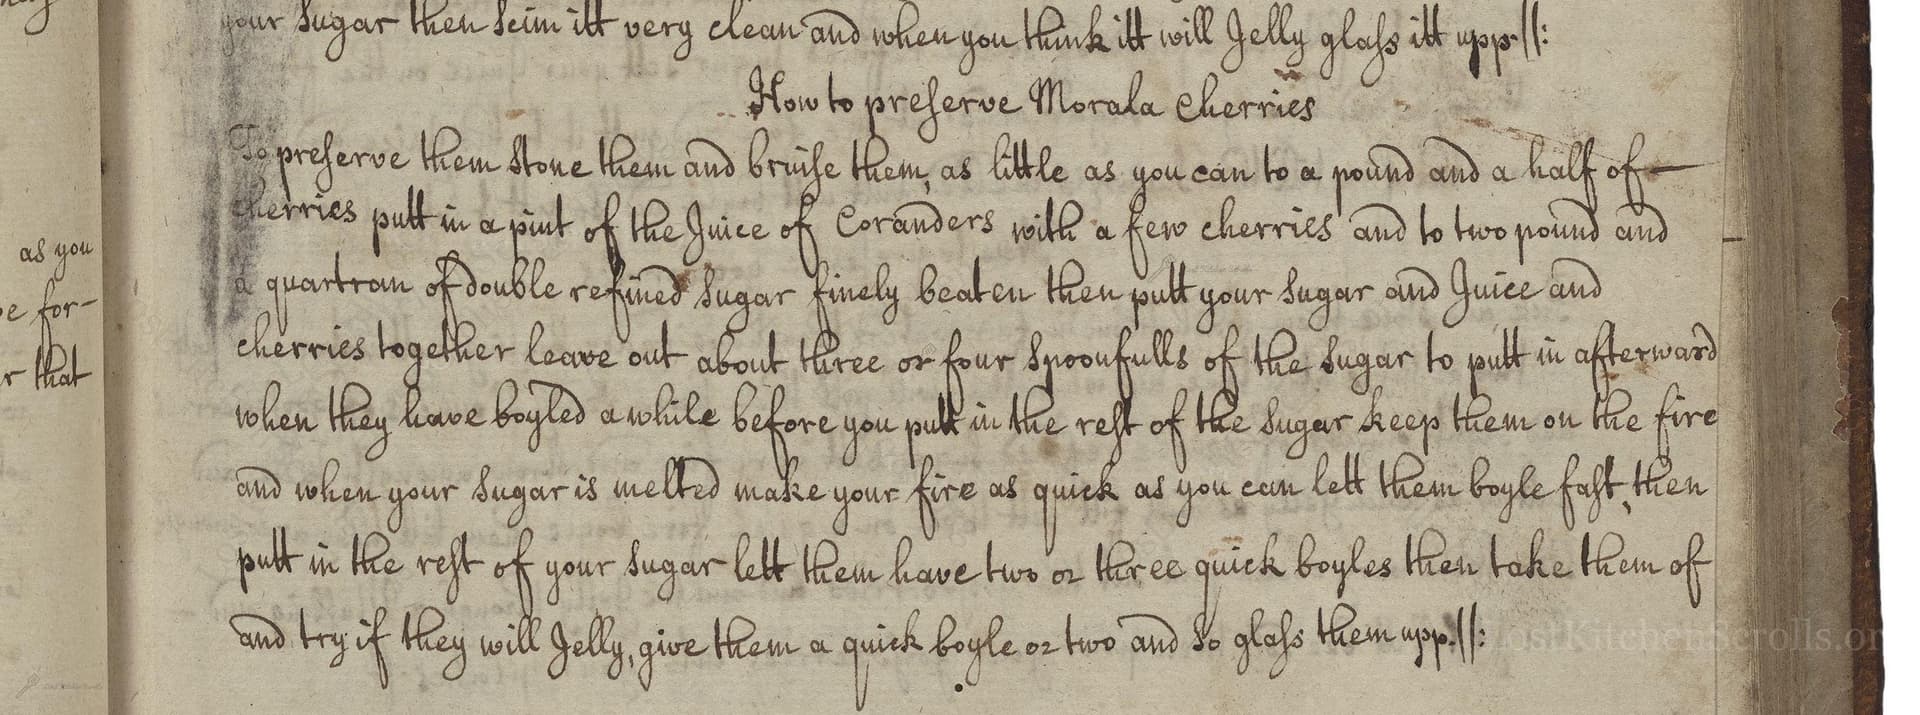 your Sugar then Scim itt very clean and when you think itt will Jelly glass itt upp.//:
How to preserve Morala Cherries
To preserve them Stone them and bruise them, as little as you can to a pound and a half of
as you
cherries putt in a pint of the Juice of Coranders with a few cherries and to two pound and
e for-
a quartran of double refined Sugar finely beaten then putt your Sugar and Juice and
r that
cherries together leave out about three or four Spoonfulls of the Sugar to putt in afterward
when they have boyled a while before you putt in the rest of the Sugar keep them on the fire
and when your Sugar is melted make your fire as quick as you can lett them boyle fast, then
putt in the rest of your Sugar lett them have two or three quick boyles then take them of
and try if they will Jelly, give them a quick boyle or two and So glass them upp.//:
LostKitchenScrolls.or